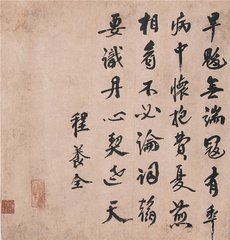 早歲無端冠有年
病中懷抱費憂煎
相看不必論詞翰
要識丹心契遠天
程養全